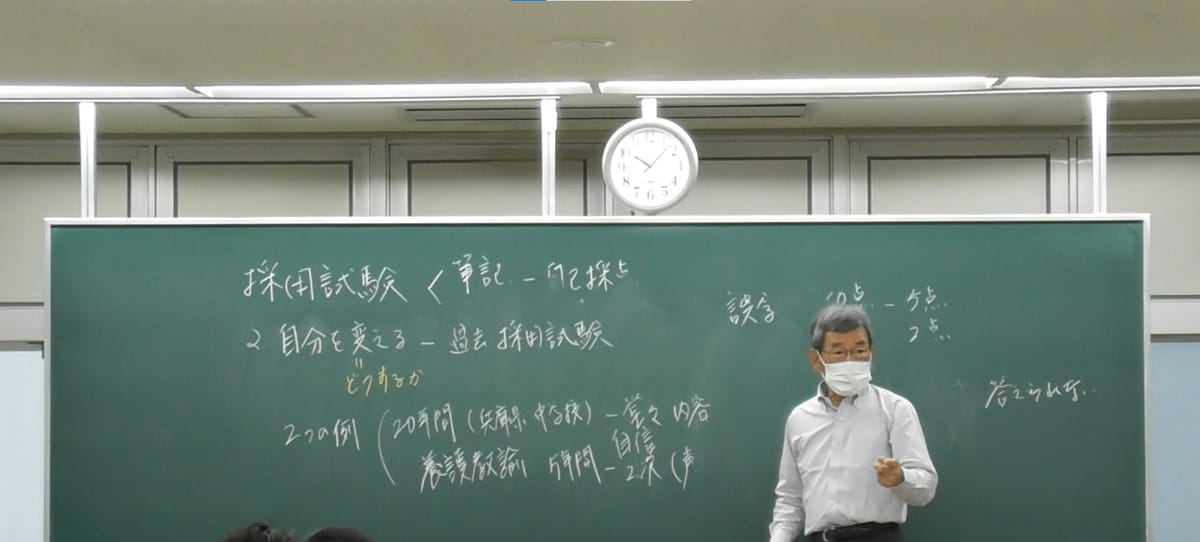 採用試験 < 筆記 - 自己採点
2 自分を変える - 過去 採用試験
〃
どうするか
2つの例 ( 20年間 (兵庫県 中学校) - 堂々 内容
自信
養護教諭 5年間 - 2次 (声
誤字 10点 - 5点
2点
答えられない
12
2
3
4
5
6
7
8
9